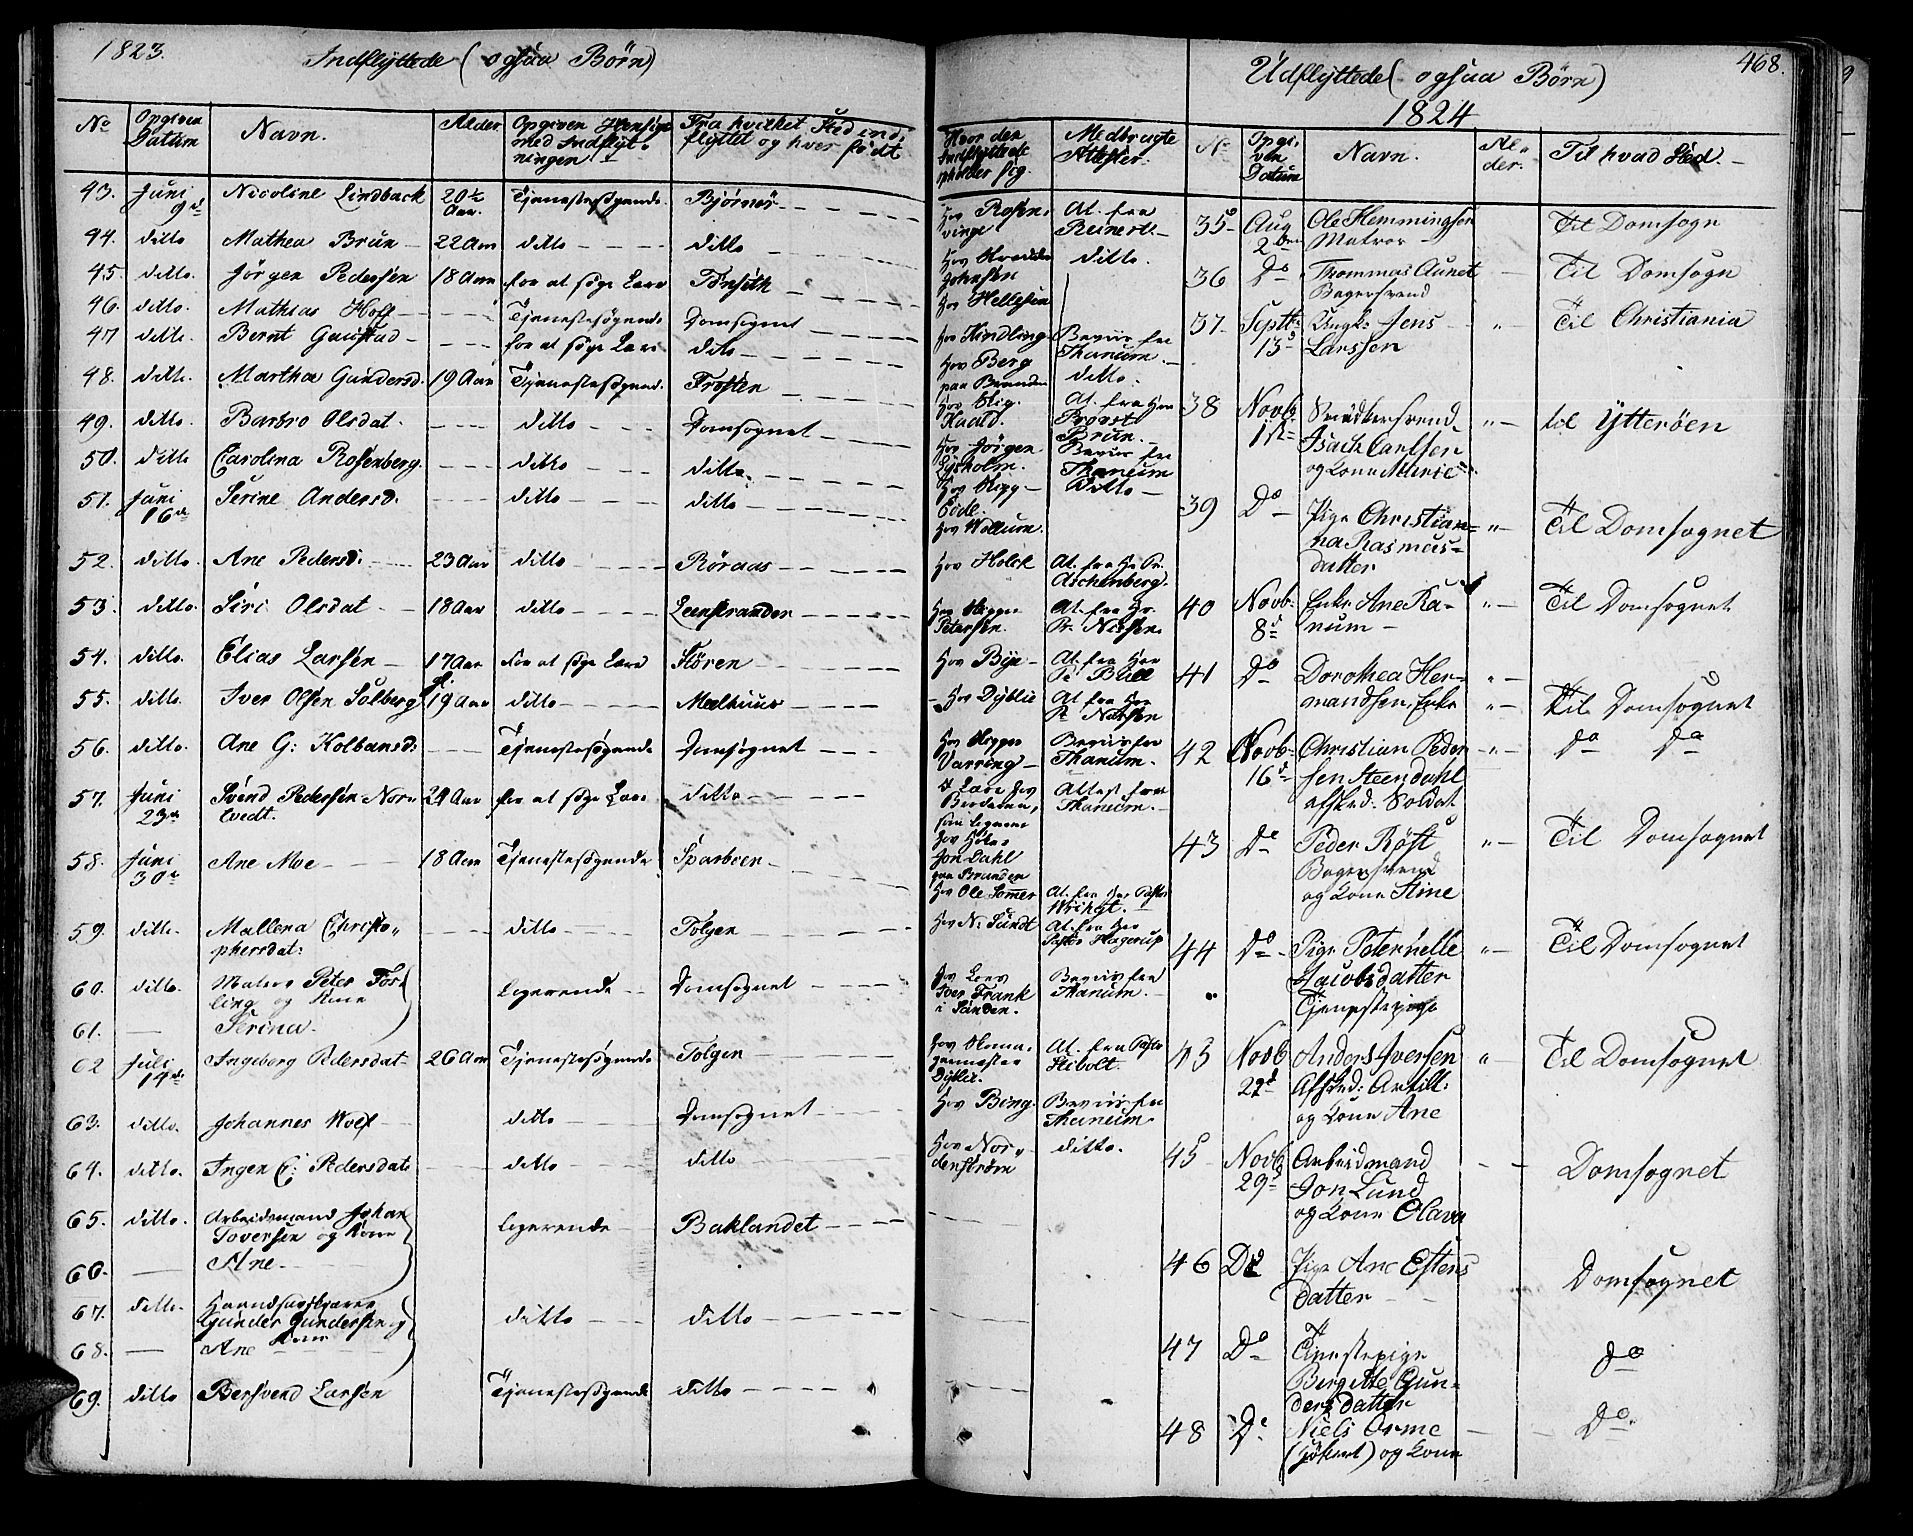 1823.
Indflyttede (ogsaa Børn)
No
Opgiven Datum
Navn.
Alder
Opgiven Hensigt med Indflytningen
Fra hvilket Sted indflyttet og hvor født
Hvor den Indflyttede opholder sig.
Medbragte Attester.
43. Juni 9d Nicoline Lindback 20½ Aar. Tjenestesøgende. Bjørnør Hos Rosenvinge At. fra Reinert
44. ditto Mathea Brun 22 Aar ditto ditto Johnsen ditto.
45. ditto. Jørgen Pedersen 18 Aar for at søge Lære Tønseth Hos Hellesen
46. ditto. Mathias Hoff Tjenestesøgende Domsognet Hos Kindling Beviis fra Thanum.
47 ditto. Bernt Gaustad for at søge Lære ditto Hos Berg paa Branden ditto.
48. ditto. Martha Gundersd. 19 Aar Tjenestesøgend. Frosten Hos Kadd. At. fra Hr Provst Brun.
49. ditto. Barbro Olsdat. ditto Domsognet Hos Jørgen Lysholm. Beviis fra Thanum
50. ditto Carolina Rosenberg. ditto ditto. ditto
51. Juni 16d Serine Andersd. ditto ditto Hos Wollum.
52. ditto. Ane Pedersd: 23 Aar ditto Røraas Hos Holck At. fra Hr Pr. Aschenberg.
53. ditto. Siri Olsdat 18 Aar ditto Leenstranden Hos Skipper Petersen. At. fra Hr. Pr. Nissen.
54. ditto. Elias Larsen 17 Aar for at søge Lære Støren Hos Bye At. fra Hr
55. ditto. Iver Olsen Solberg 19 Aar ditto Meelhuus Hos Dyblie At. fra Hr
56. ditto. Ane G: Kolbansd: Tjenestesøgende Domsognet Hos Skipper Varring Beviis fra Thanum.
57. Juni 23d Svend Pedersen Norlvedt. 24 Aar for at søge Lære ditto Attest fra Thanum.
58. Juni 30d Ane Moe 18 Aar Tjenestesøgende Sparboen Hos Ole Sommer At. fra Hr Pastor Wrihgt.
59. ditto. Mallena Christophersdat: ditto Tolgen Hos N: Sundt At. fra Hr Pastor Hagerup
60. ditto. Matros Peter Forling og Kone Logerende Domsognet Hos Iver Frank i Sanden. Beviis fra Thanum.
61. Serina.
62 Juli 14de Ingeborg Pedersdat 26 Aar Tjenestesøgende Tolgen Dyblie. At. fra Pastor Stibolt.
63. ditto. Johannes Wolf ditto Domsognet Hos Bing. Beviis fra Thanum.
64. ditto. Ingen C: Pedersdat ditto ditto Hos Nordenstrøm ditto.
65. ditto. Arbeidsmand Johan Toversen og Kone Logerende Baklandet
66. Ane.
67. ditto. Gunder Gundersen og Kone ditto ditto
68. Ane
69. ditto Bersvend Larsen Tjenestesøgende ditto
468.
Udflyttede (ogsaa Børn)
1824
No
Opgiven Datum
Navn.
Alder.
Til hvad Sted.
35 Aug 2den Ole Hemmingsen Matros Til Domsogn
36 Do Thommas Aunet Bagersvend Til Domsogn
37. Septb: 13d Ungk: Jens Larssen Til Christiania
38 Novb 1ste Snedkersvend Isach Carlsen og Kone Marie til Ytterøen
39 Do Pige Christianna Rasmusdatter Til Domsognet
40 Novb: 8d Enke Ane Ranum Til Domsognet
41 Do Dorothea Hermandsen, Enke Til Domsognet
42 Novb 16d Christian Pedersen Steendahl afsked: Soldat Do Do
43 Do Peder Røst Bagersvend og Kone Stine Til Domsognet
44 Do Pige Peternelle Jacobsdatter Tjenestepige Til Domsognet
43 Novb 22d Anders Iversen Afsked: Artill: og Kone Ane Til Domsognet
45 Novb 29d Arbeidmand Jon Lund og Kone Olava Domsognet
46 Do Pige Ane Estensdatter Domsognet
47 Do Tjenestepige Birgitte Gundersdatter Do
48 Do Niels Orme og Kone Do